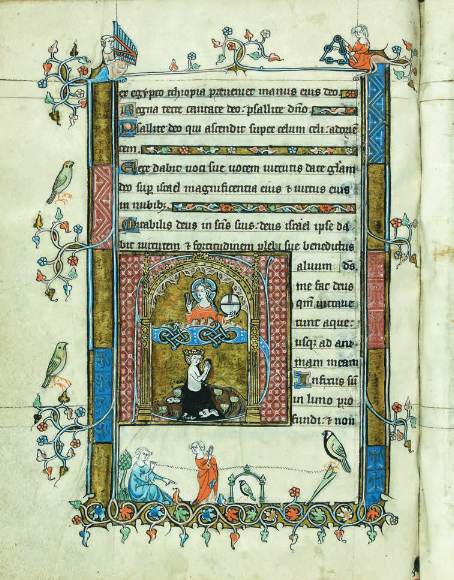 ex egypto ethiopia preveniet manus eius deo
Regna terre cantate deo: psallite dño
Psallite deo qui ascendit super celum celi adorien
tem
Ecce dabit voci sue vocem virtutis date gliam
deo sup israel magnificentia eius & virtus eius
in nubib
Mirabilis deus in scis suis: deus israel ipse da
bit virtutem & fortitudinem plebi sue benedictus
alvum
me fac deus
qm intrave
runt aque
usq ad ani
mam meam
Infixus su
in limo pro
fundi: & non